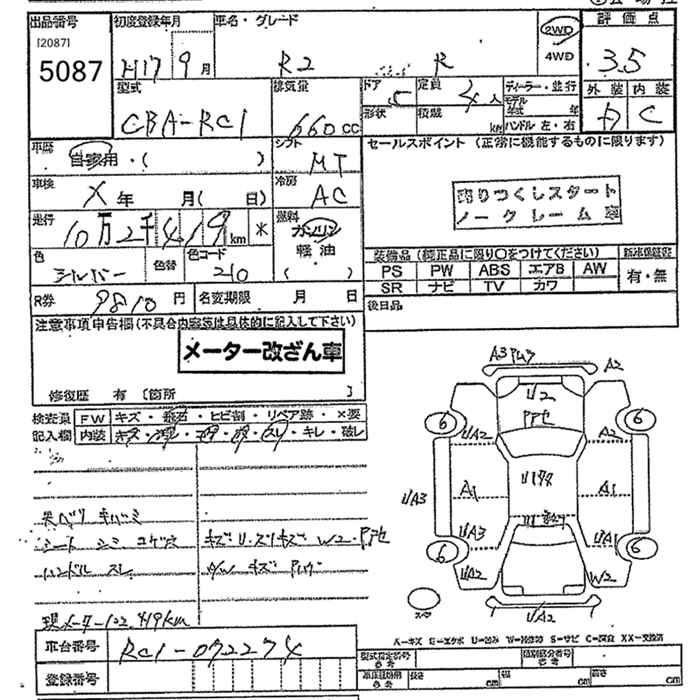 出品番号 初度登録年月 車名・グレード 評価点
[2087]
5087 H17 9月 R2 R 2WD 3.5
4WD
型式 排気量 ドア 定員 ディーラー・並行 外装 内装
CBA-RC1 660cc 5 4人 モデル年式 年 C
形状 積載 kg ハンドル 左・右
車歴 自家用・( ) シフト MT セールスポイント (正常に機能するものに限ります)
車検 X年 月( 日) 冷房 AC 売りつくしスタート
ノークレーム車
走行 10万2千419km 燃料 ガソリン
軽油
色 シルバー 色替 色コード 210 装備品 (純正品に限り○をつけてください) 新車保証書
PS PW ABS エアB AW 有・無
SR ナビ TV カワ
R券 9810円 名変期限 月 日 後日品
注意事項申告欄(不具合内容等は具体的に記入して下さい)
メーター改ざん車
修復歴 有 〔箇所 〕
検査員 FW キズ・飛石・ヒビ割・リペア跡・×要
記入欄 内装 キズ・スレ・キレ・破レ
A3 A2
U2
6 UA2 A2 6
A1 A1
UA3
UA3 UA1
6 UA2 W2 6
UA2
シート シミ コゲ穴 キズU・スリキズ W2・
ハンドル スレ キズ
現メーター102,419km
A=キズ E=エクボ U=凹み W=補修跡 S=サビ C=腐食 XX=交換済
車台番号 RC1-072274 型式指定番号 類別区分番号
登録番号 長さ cm 幅 cm 高さ cm